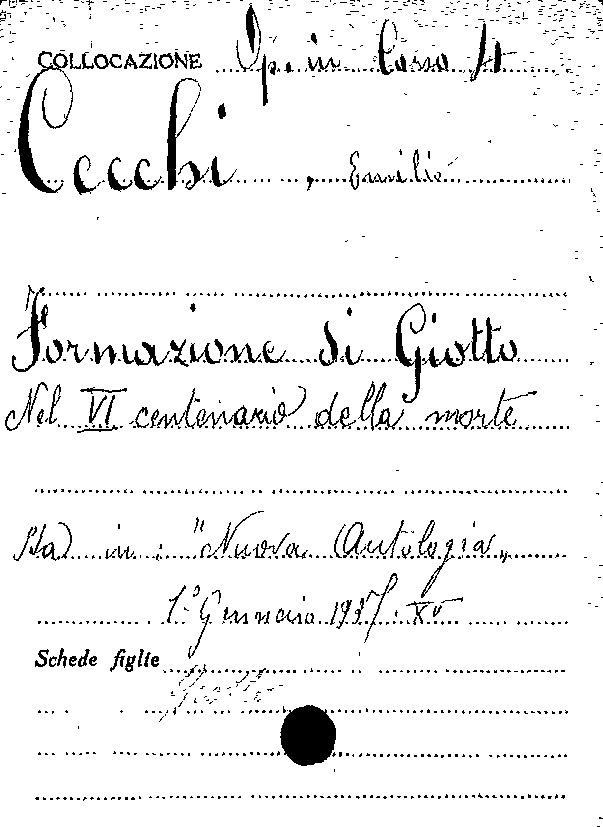 COLLOCAZIONE Op. in Corso 4
Cecchi, Emilio
Formazione di Giotto
Nel VI centenario della morte
Sta in: "Nuova Antologia„
1° Gennaio 1937. XV
Schede figlie
Giotto